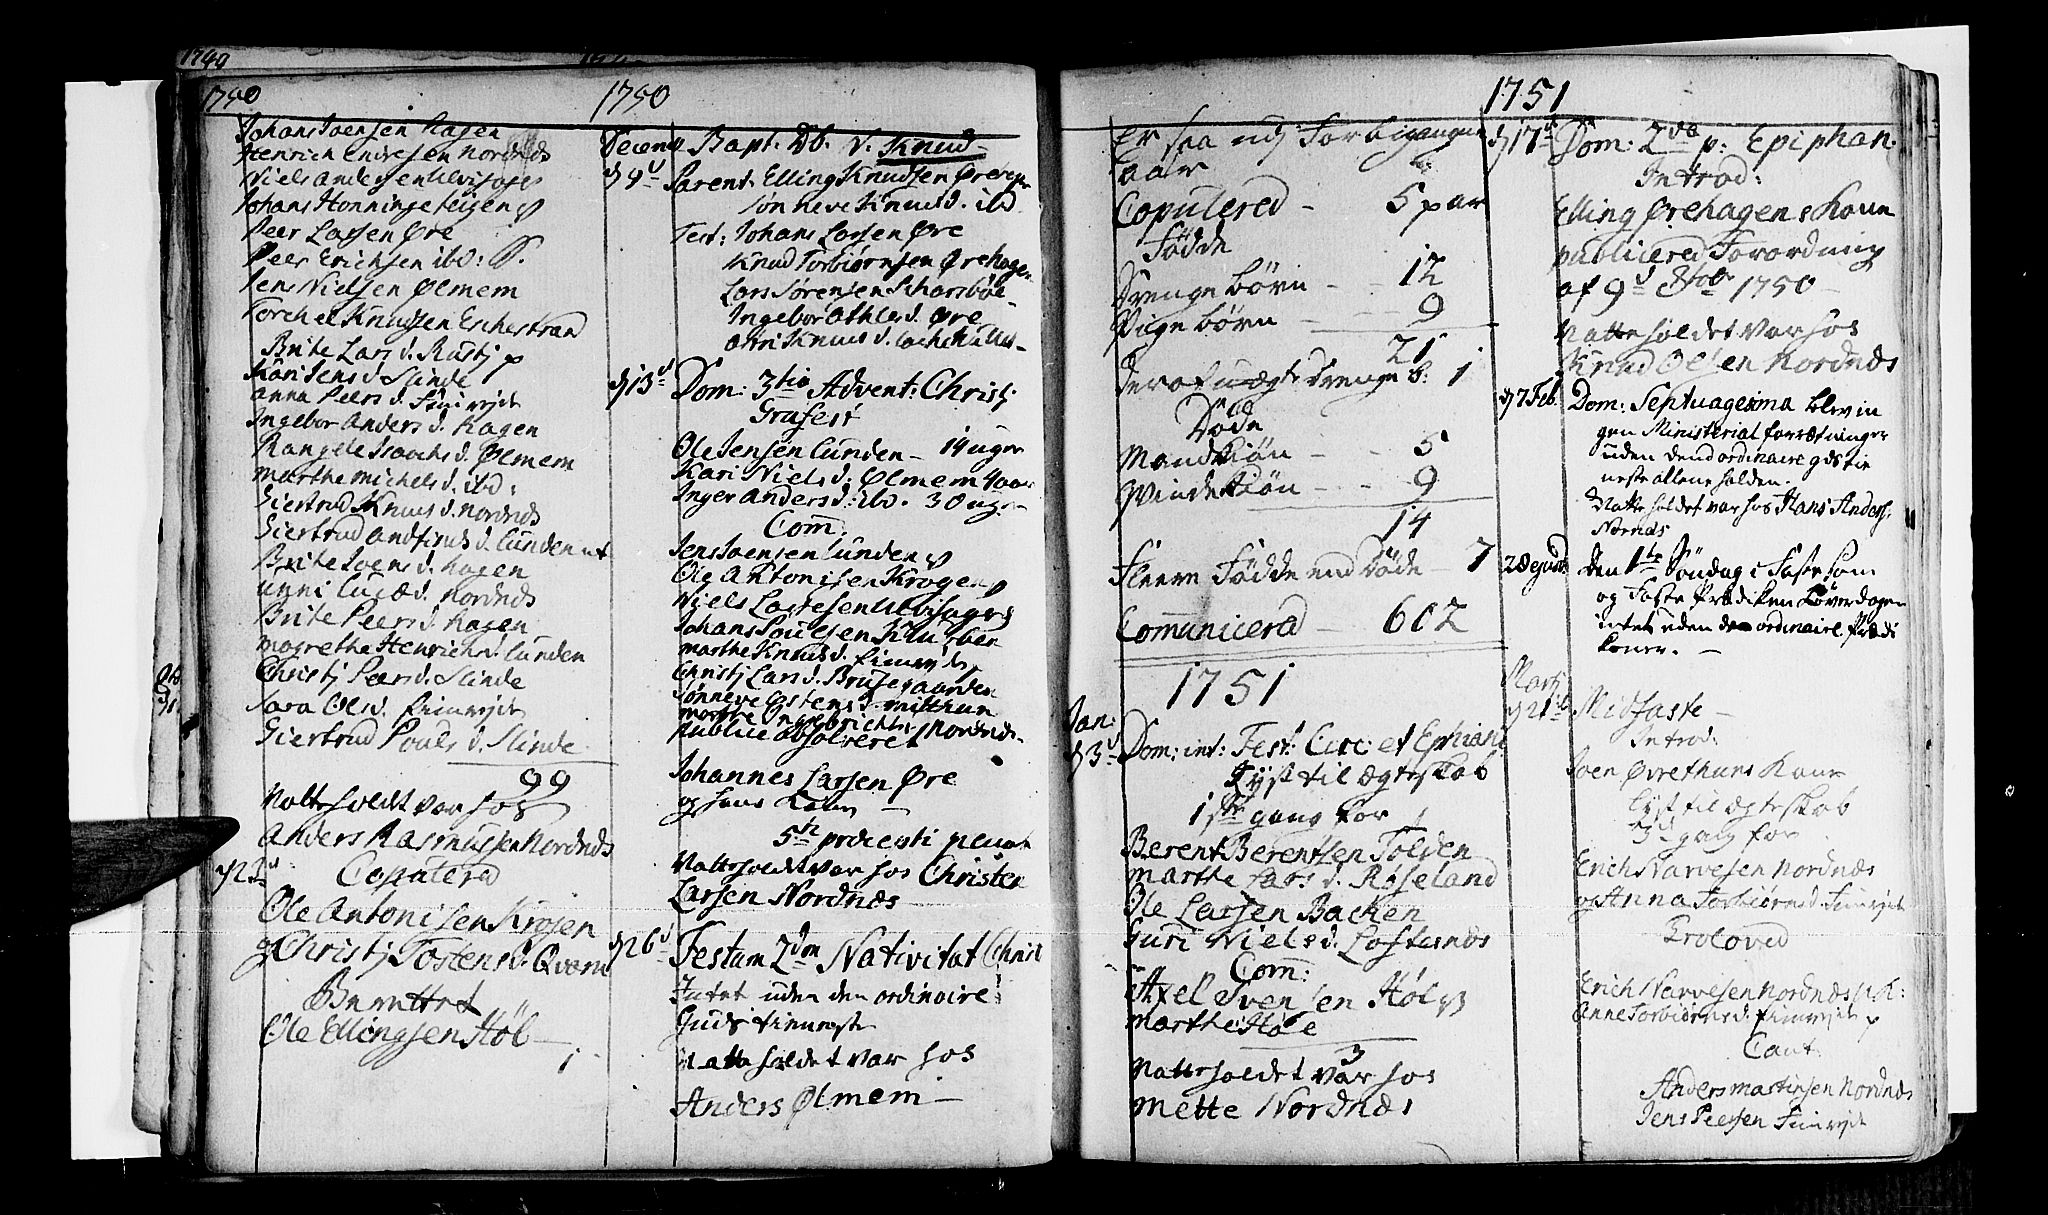 1749
1750
1750
Johans Joensen Hagen
Henrich Endresen Nordnæs
Niels Andersen Ulvisager
Johans Honningeteigen
Peer Larsen Øre
Peer Erichsen ibd: S.
Jens Nielsen Ølmem
Torchel Knudsen Eschestrand
Brite Lars d. Rustj
Kari Jens d. Slinde
Anna Peers d. Fimrejte
Ingebor Anders d. Hagen
Rangele Isaachs d. Ølmem
Marthe Michels d. ibd:
Giertrud Knuds d. Nordnæs
Giertrud Andfinds d. Lunden
Brite Joens d. Hagen
Unni Lucæ d. Nordnæs
Brite Peers d. Hagen
Magrethe Henrichs d. Lunden
Christj Peers d. Slinde
Sara Ols d. Fimrejte
Giertrud Pouls d. Slinde
99
Natteholdet var hos
Anders Rasmussen Nordnæs
d 22d Copulered
Ole Antonisen Krogen
og Christj Tostens d. Qværn
Berettet
Ole Ellingsen Høl
1
Decemb Bapt. Db. N. Knud
d 9d Parent: Elling Knudsen Ørehagen
Sønneve Knuds d. ibd
Test: Johans Larsen Øre
Knud Torbiørnsen Ørehagen
Lars Sørensen Scharsbøe
Ingebor Athles d. Øre
Anni Knuds d.
d 13d Dom: 3tia Advent: Christj
Grafest
Ole Jensen Lunden - 14 uger
Kari Niels d: Ølmem 4 aar
Inger Anders d: ibd. 30 uger
Com:
Jens Joensen Lunden
Ole Antonisen Krogen
Niels Lassesen Ulvisager
Johans Poulsen Klugben
Marthe Knuds d. Fimrejte
Christj Lars d. Brusegaarden
Sønneve Ostens d. Mitthun
Marthe Ingebrichts d. Nordnæs
Publice absolveret
Johannes Larsen Øre
og hans Kone
5te præcepti
Natteholdet var hos Christen
Larsen Nordnæs
d 26d Festum 2dm Nativitat Christ
Intet uden den ordinaire
Guds tieneste
Natteholdet var hos
Anders Ølmem
1751
Er saa udj Forbigangne
aar
Copulered - 5 par
Fødde
Drenge børn - 12
Pige børn - 9
21
Deraf uægte Drenge b: 1
Døde
Mandkiøn - 5
Qvindekiøn - 9
14
Fleere Fødde end Døde - 7
Comunicered - 602
1751
Jan:
d 3d Dom: int: Fest: Circ: et Ephiani
Lyst til Ægteskab
1ste gang for
Berent Berentsen Tolden
Marthe Lars d. Røseland
Ole Larsen Backen
Guri Niels d. Loftesnæs
Com:
Axel Svensen Høl
Marthe Høle
3
Natteholdet var hos
Mette Nordnæs
d 17d Dom: 2da p: Epiphan.
Introd:
Elling Ørehagens Kone
publicered Forordning
af 9d 8tobr 1750
Natteholdet var hos
Knud Olsen Nordnæs
d 7 Feb. Dom: Septuagesima blev in
gen Ministerial forrætninger
uden dend ordinaire gdstie
neste allene holden.
Natteholdet var hos Hans Anders:
Nornæs
Den 1te Søndag i Faste som
og Faste Prædiken Løverdagen
intet uden de ordinaire Prædi
kener.
Martj
d 21d Midfaste
Introd:
Joen Øvrethuns Kone
Lyst til Ægteskab
3d gang for
Erich Narvesen Nordnæs
og Anna Torbiørns d. Fimrejte
Troloved
Erich Narvesen Nordnæs
Anne Torbiørns d. Fimrejte
Caut:
Anders Martinsen Nordnæs
Jens Peersen Fimrejte